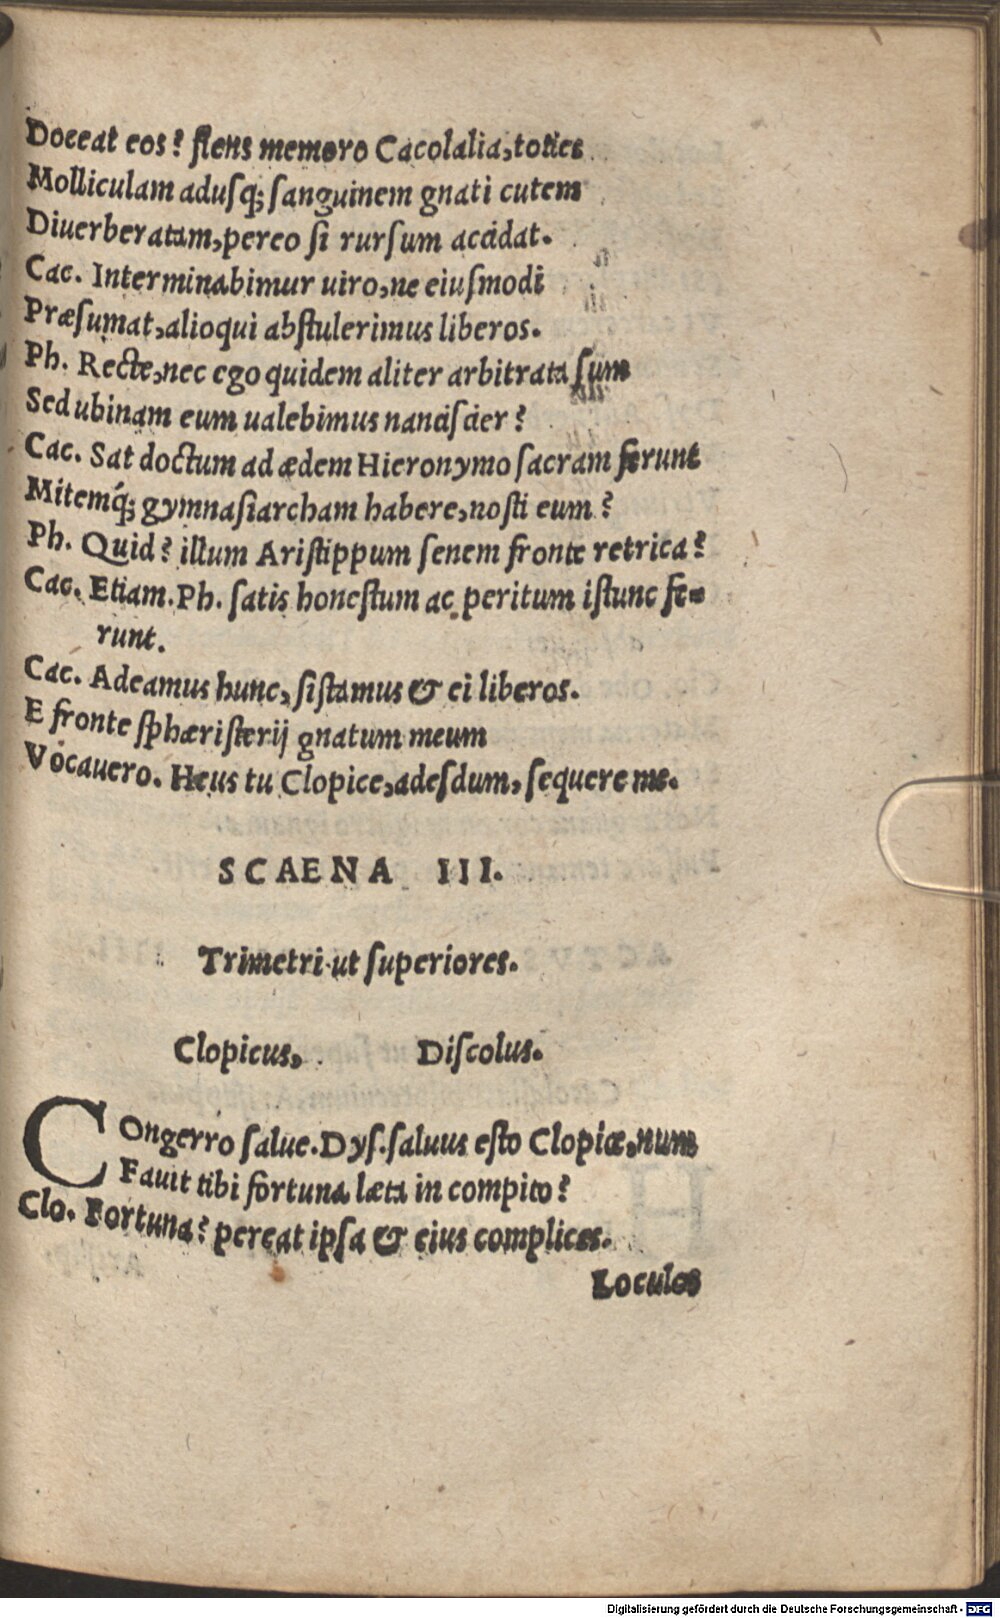 Doceat eos? flens memoro Cacolalia, toties
Molliculam aduſq; ſanguinem gnati cutem
Diuerberatam, pereo ſi rurſum accidat.
Cac. Interminabimur uiro, ne eiuſmodi
Præſumat, alioqui abſtulerimus liberos.
Ph. Recte, nec ego quidem aliter arbitrata ſum
Sed ubinam eum ualebimus nanciſcier?
Cac. Sat doctum ad ædem Hieronymo ſacram ferunt
Mitemq́; gymnaſiarcham habere, noſti eum?
Ph. Quid? illum Ariſtippum ſenem fronte retrica?
Cac. Etiam. Ph. ſatis honeſtum ac peritum iſtunc fe-
runt.
Cac. Adeamus hunc, ſiſtamus & ei liberos.
E fronte ſphæriſterij gnatum meum
Vocauero. Heus tu Clopice, adeſdum, ſequere me.
SCAENA III.
Trimetri ut ſuperiores.
Clopicus, Diſcolus.
COngerro ſalue. Dyſ. ſaluus eſto Clopice, num
Fauit tibi fortuna læta in compito?
Clo. Fortuna? pereat ipſa & eius complices.
Loculos
Digitalisierung gefördert durch die Deutsche Forschungsgemeinschaft - DFG